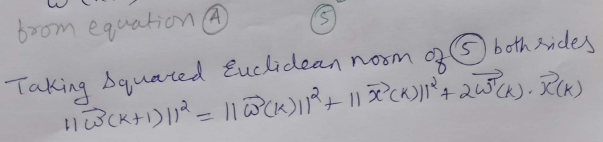 from equation Ⓐ ⑤
Taking Squared Euclidean norm of ⑤ both sides
||w⃗(k+1)||² = ||w⃗(k)||² + ||x⃗(k)||² + 2w⃗ᵀ(k).x⃗(k)